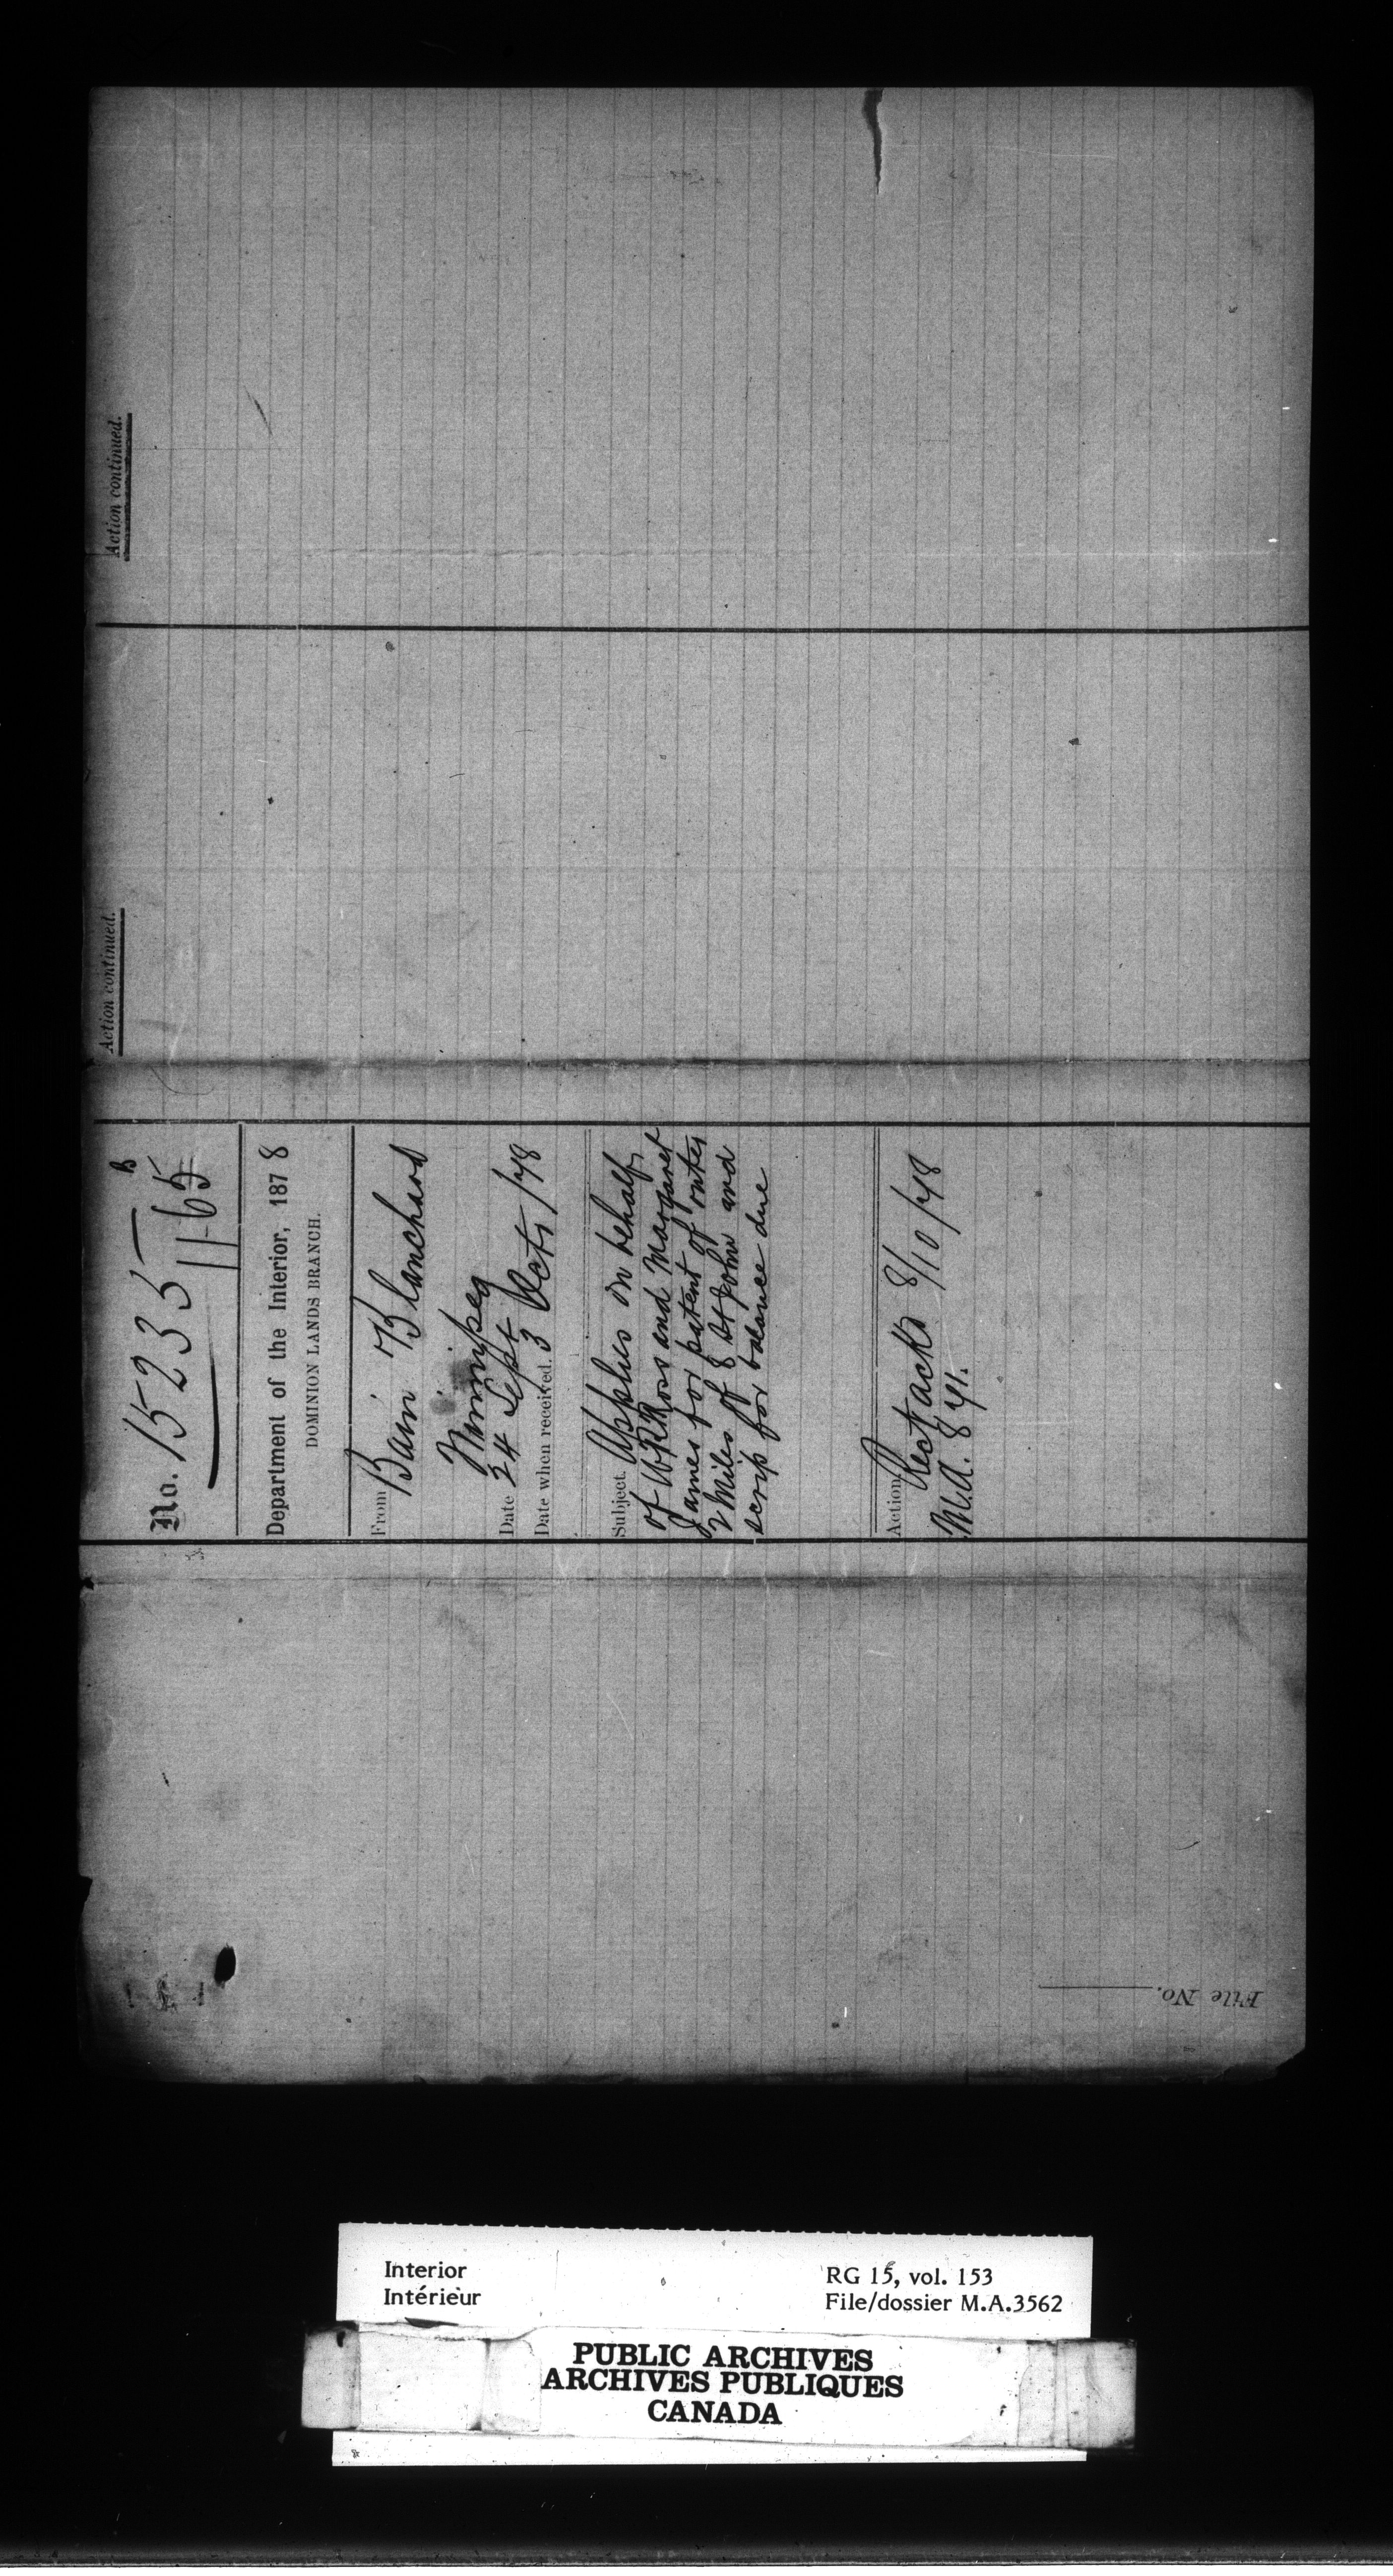 Action continued.
Action continued.
No. 15235 B
11-65
Department of the Interior, 1878
DOMINION LANDS BRANCH.
From Bain Blanchard
Winnipeg
Date 24 Sept
Date when received. 3 Oct /78
Subject. Applies on behalf
of W R Ross and Margaret
James for patent of outer
2 Miles of 8 St John and
scrip for balance due
Action. 8/10/78
M.A. 841.
File No.
Interior
Intérieur
RG 15, vol. 153
File/dossier M.A.3562
PUBLIC ARCHIVES
ARCHIVES PUBLIQUES
CANADA